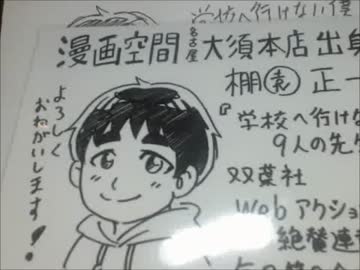 学校へ行けない僕
漫画空間 名古屋 大須本店 出身
棚園正一
『学校へ行けな
9人の先生
双葉社
Webアクション
絶賛連
よろしく
おねがいします!